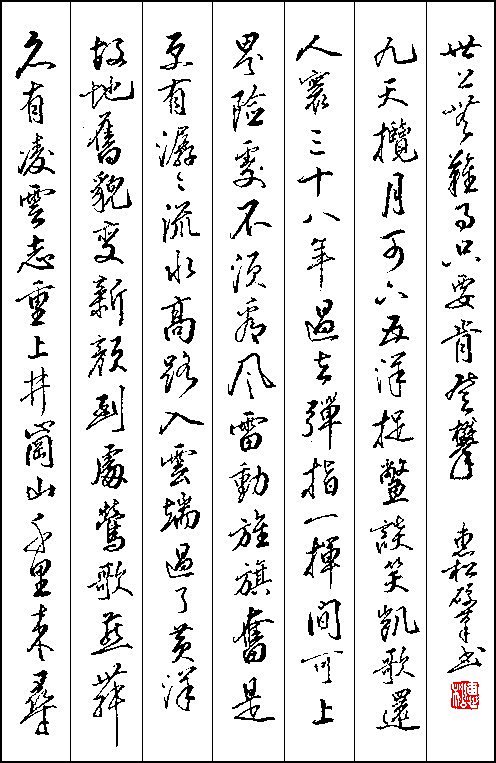 久有凌雲志重上井崗山千里來尋
故地舊貌變新顏到處鶯歌燕舞
更有潺々流水高路入雲端過了黃洋
界險處不須看風雷動旌旗奮是
人寰三十八年過去彈指一揮間可上
九天攬月可下五洋捉鱉談笑凱歌還
世上無難事只要肯登攀 惠松硬筆書